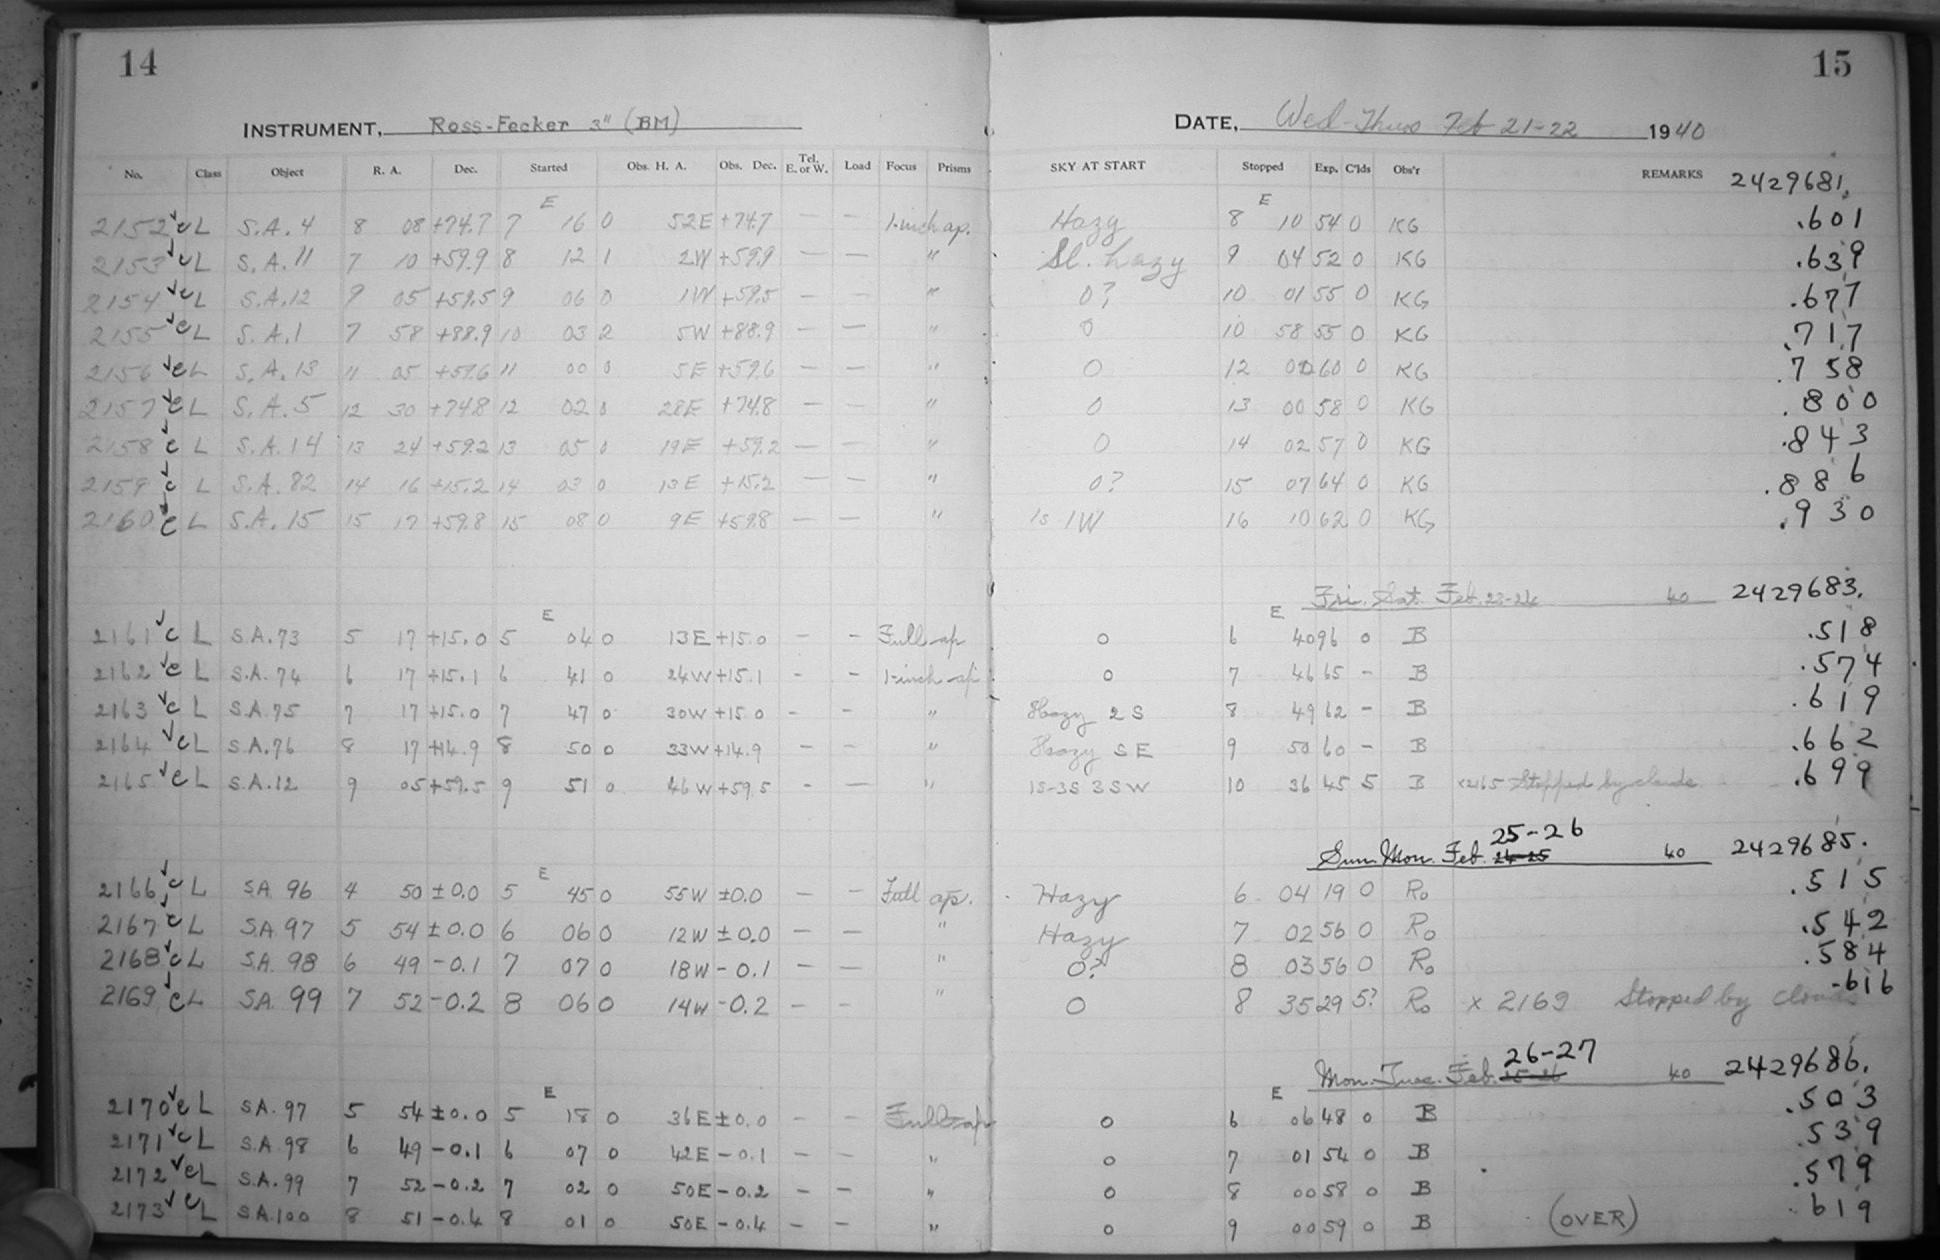 14
15
INSTRUMENT, Ross-Fecker 3" (BM)
DATE, Wed-Thurs Feb 21-22 1940
No. Class Object R. A. Dec. Started Obs. H. A. Obs. Dec. Tel. E. or W. Load Focus Prisms SKY AT START Stopped Exp. C'lds Obs'r REMARKS 2429681.
E E
2152 c L S.A. 4 8 08 +74.7 7 16 0 52E +74.7 — — 1-inch ap. Hazy 8 10 54 0 KG .601
2153 c L S.A. 11 7 10 +59.9 8 12 1 2W +59.9 — — " Sl. hazy 9 04 52 0 KG .639
2154 c L S.A. 12 9 05 +59.5 9 06 0 1W +59.5 — — " 0? 10 01 55 0 KG .677
2155 c L S.A. 1 7 58 +88.9 10 03 2 5W +88.9 — — " 0 10 58 55 0 KG .717
2156 c L S.A. 13 11 05 +59.6 11 00 0 5E +59.6 — — " 0 12 00 60 0 KG .758
2157 c L S.A. 5 12 30 +74.8 12 02 0 28E +74.8 — — " 0 13 00 58 0 KG .800
2158 c L S.A. 14 13 24 +59.2 13 05 0 19E +59.2 — — " 0 14 02 57 0 KG .843
2159 c L S.A. 82 14 16 +15.2 14 03 0 13E +15.2 — — " 0? 15 07 64 0 KG .886
2160 c L S.A. 15 15 17 +59.8 15 08 0 9E +59.8 — — " 1s 1W 16 10 62 0 KG .930
Fri. Sat. Feb. 23-24 40 2429683.
E E
2161 c L S.A. 73 5 17 +15.0 5 04 0 13E +15.0 - - Full ap 0 6 40 96 0 B .518
2162 c L S.A. 74 6 17 +15.1 6 41 0 24W +15.1 - - 1-inch ap 0 7 46 65 - B .574
2163 c L S.A. 75 7 17 +15.0 7 47 0 30W +15.0 - - " Hazy 2 S 8 49 62 - B .619
2164 c L S.A. 76 8 17 +14.9 8 50 0 33W +14.9 - - " Hazy S E 9 50 60 - B .662
2165 c L S.A. 12 9 05 +59.5 9 51 0 46W +59.5 - — " 1S-3S 3SW 10 36 45 5 B x2165 Stopped by clouds .699
25-26
Sun. Mon. Feb. 24-25 40 2429685.
E
2166 c L S.A. 96 4 50 ±0.0 5 45 0 55W ±0.0 — — Full ap. Hazy 6 04 19 0 Ro .515
2167 c L S.A. 97 5 54 ±0.0 6 06 0 12W ±0.0 — — " Hazy 7 02 56 0 Ro .542
2168 c L S.A. 98 6 49 -0.1 7 07 0 18W -0.1 — — " 0? 8 03 56 0 Ro .584
2169 c L S.A. 99 7 52 -0.2 8 06 0 14W -0.2 — — " 0 8 35 29 5? Ro x 2169 Stopped by clouds .616
26-27
Mon. Tues. Feb. 25-26 40 2429686.
E E
2170 c L S.A. 97 5 54 ±0.0 5 18 0 36E ±0.0 - - Full ap 0 6 06 48 0 B .503
2171 c L S.A. 98 6 49 -0.1 6 07 0 42E -0.1 — — " 0 7 01 54 0 B .539
2172 c L S.A. 99 7 52 -0.2 7 02 0 50E -0.2 — — " 0 8 00 58 0 B .579
2173 c L S.A. 100 8 51 -0.4 8 01 0 50E -0.4 — — " 0 9 00 59 0 B (OVER) .619